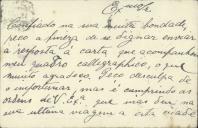 Exmo Sr.
Confiado na sua muita bondade,
peço a fineza de se dignar enviar
a resposta á carta que acompanhou
meu quadro calligraphico, o que
muito agradeço. Peço desculpa de
o importunar, mas é cumprindo as
ordens de V. Exª., que mas deu na
sua ultima viagem a esta cidade